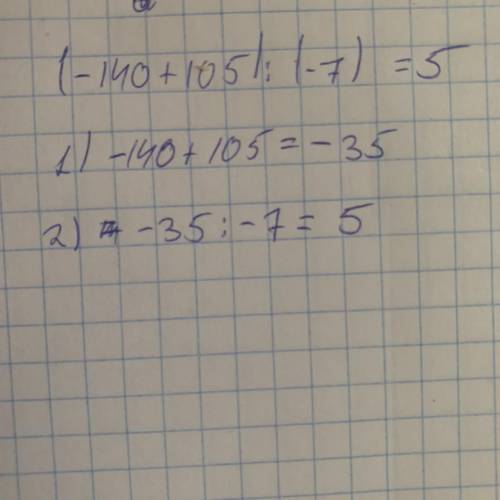 (-140+105):(-7) =5
1) -140+105=-35
2) -35:-7= 5